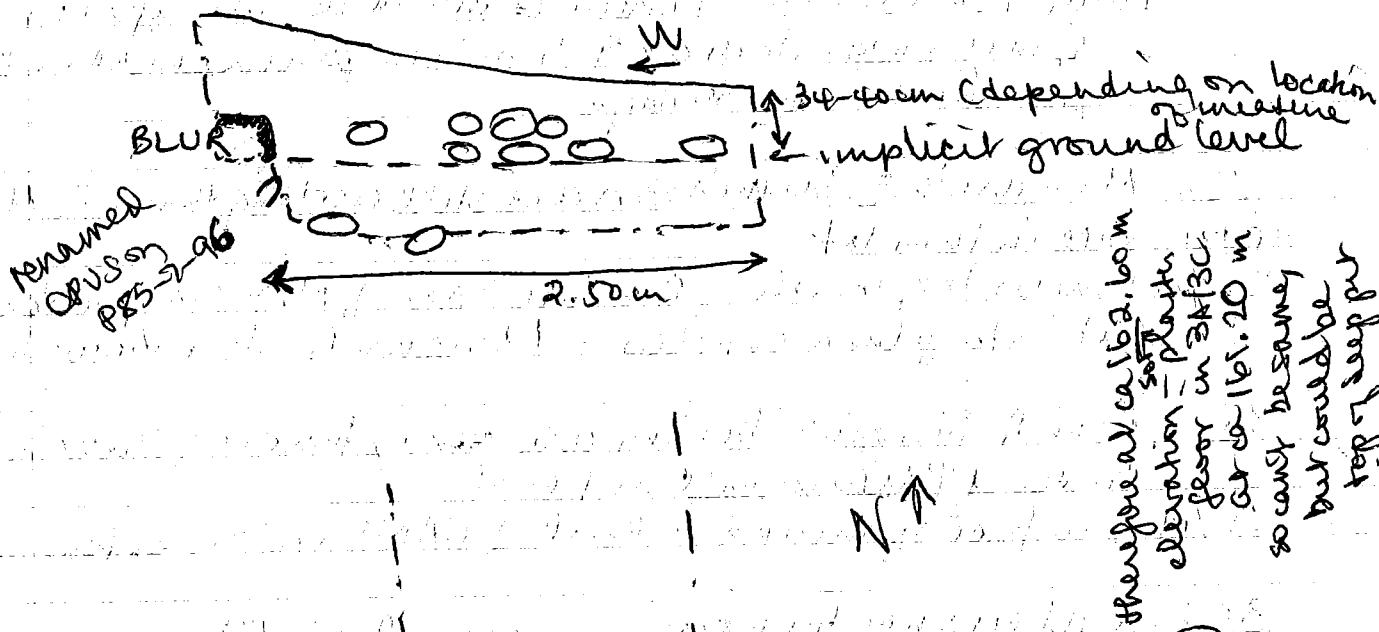 W
34-40cm (depending on location
of measure
BLUR
← implicit ground level
renamed
OPUS on
P85-2-96
2.50m
N
therefore at ca 162.60 m
elevation = plaster
floor in 3A/3C
at ca 161.20 m
so can't be same
but could be
top of deep pit